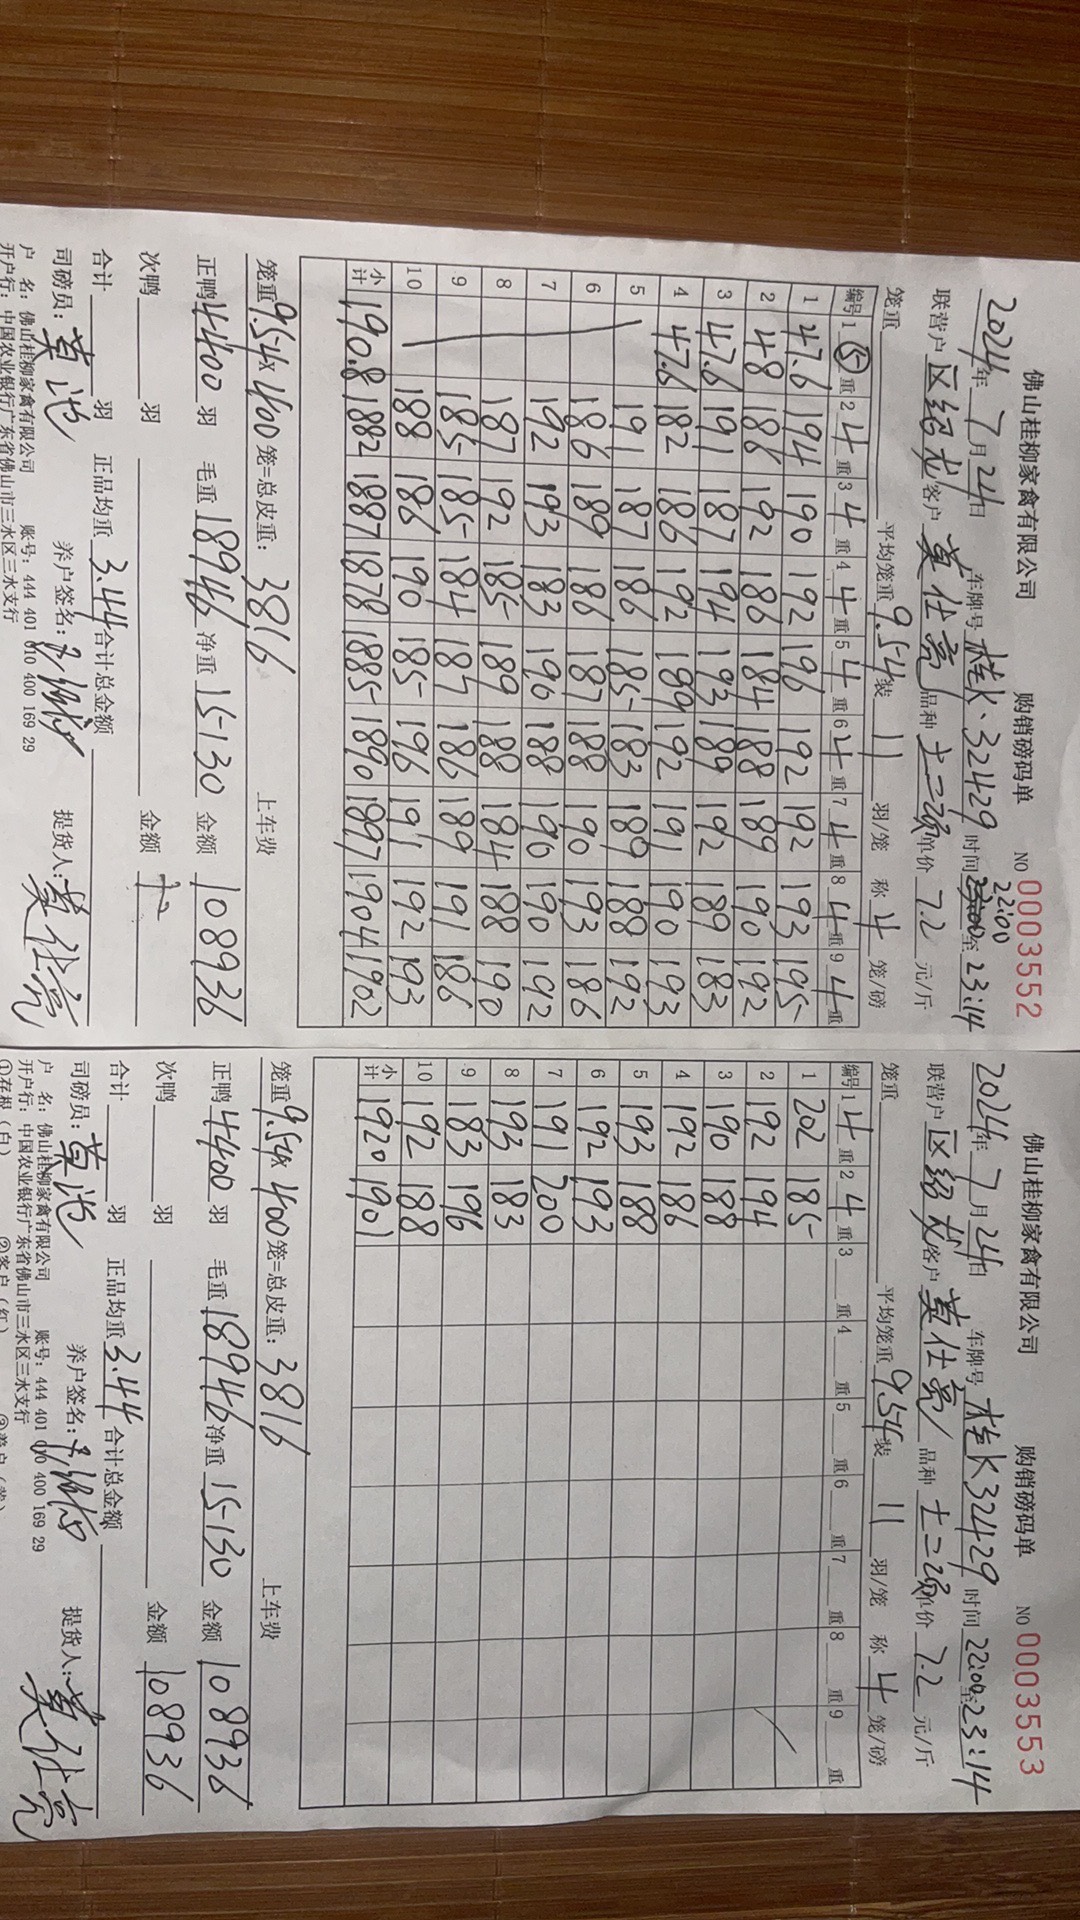 佛山桂柳家禽有限公司 购销磅码单 NO 0003552
2024年7月24日 车牌号 桂K·32429 时间 22:00至23:14
联营户 区绍龙 客户 莫仕亮 品种 士二 单价 7.2 元/斤
笼重 平均笼重 9.54 装 11 羽/笼 称 4 笼/磅
编号 1 ⑤重 2 4重 3 4重 4 4重 5 4重 6 4重 7 4重 8 4重 9 4重
1 47.6 194 190 192 196 192 192 193 195
2 48 186 192 186 184 188 189 190 192
3 47.6 191 187 194 193 189 192 189 183
4 47.6 182 186 192 199 192 191 190 193
5 191 187 186 185 183 189 188 192
6 186 189 186 187 188 190 193 186
7 192 193 183 190 188 190 190 192
8 187 192 185 189 188 184 188 190
9 185 185 184 187 186 189 191 186
10 188 186 190 185 196 191 192 193
小计 190.8 1882 1887 1878 1885 1890 1897 1904 1902
笼重 9.54×400 笼=总皮重: 3816 上车费
正鸭 4400 羽 毛重 18946 净重 15130 金额 108936
次鸭 羽 金额
合计 羽 正品均重 3.44 合计总金额
司磅员: 莫池 养户签名: 提货人: 莫仕亮
户 名: 佛山桂柳家禽有限公司 账号: 444 401 010 400 169 29
开户行: 中国农业银行广东省佛山市三水区三水支行
佛山桂柳家禽有限公司 购销磅码单 NO 0003553
2024年7月24日 车牌号 桂K32429 时间 22:00至23:14
联营户 区绍龙 客户 莫仕亮 品种 士二 单价 7.2 元/斤
笼重 平均笼重 9.54 装 11 羽/笼 称 4 笼/磅
编号 1 4重 2 4重 3 重 4 重 5 重 6 重 7 重 8 重 9 重
1 202 185
2 192 194
3 190 188
4 192 186
5 193 188
6 192 193
7 191 200
8 193 183
9 183 196
10 192 188
小计 1920 1901
笼重 9.54×400 笼=总皮重: 3816 上车费
正鸭 4400 羽 毛重 18946 净重 15130 金额 108936
次鸭 羽 金额 108936
合计 羽 正品均重 3.44 合计总金额
司磅员: 莫池 养户签名: 提货人: 莫仕亮
户 名: 佛山桂柳家禽有限公司 账号: 444 401 010 400 169 29
开户行: 中国农业银行广东省佛山市三水区三水支行
①存根(白) ②客户(红) ③养户(黄)